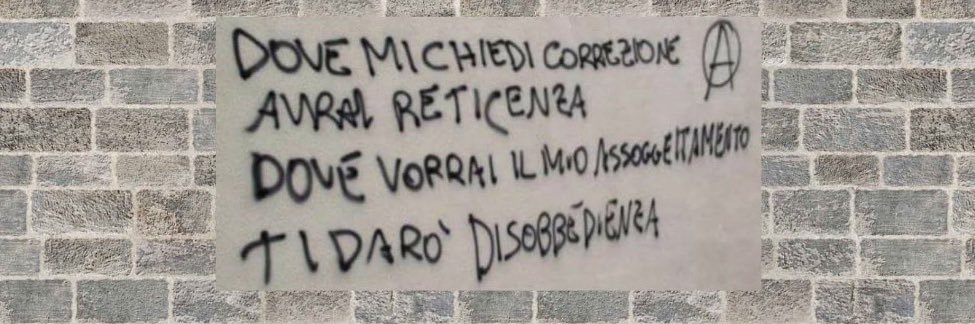 DOVE MI CHIEDI CORREZIONE Ⓐ
AVRAI RETICENZA
DOVE VORRAI IL MIO ASSOGGETTAMENTO
TI DARO' DISOBBEDIENZA